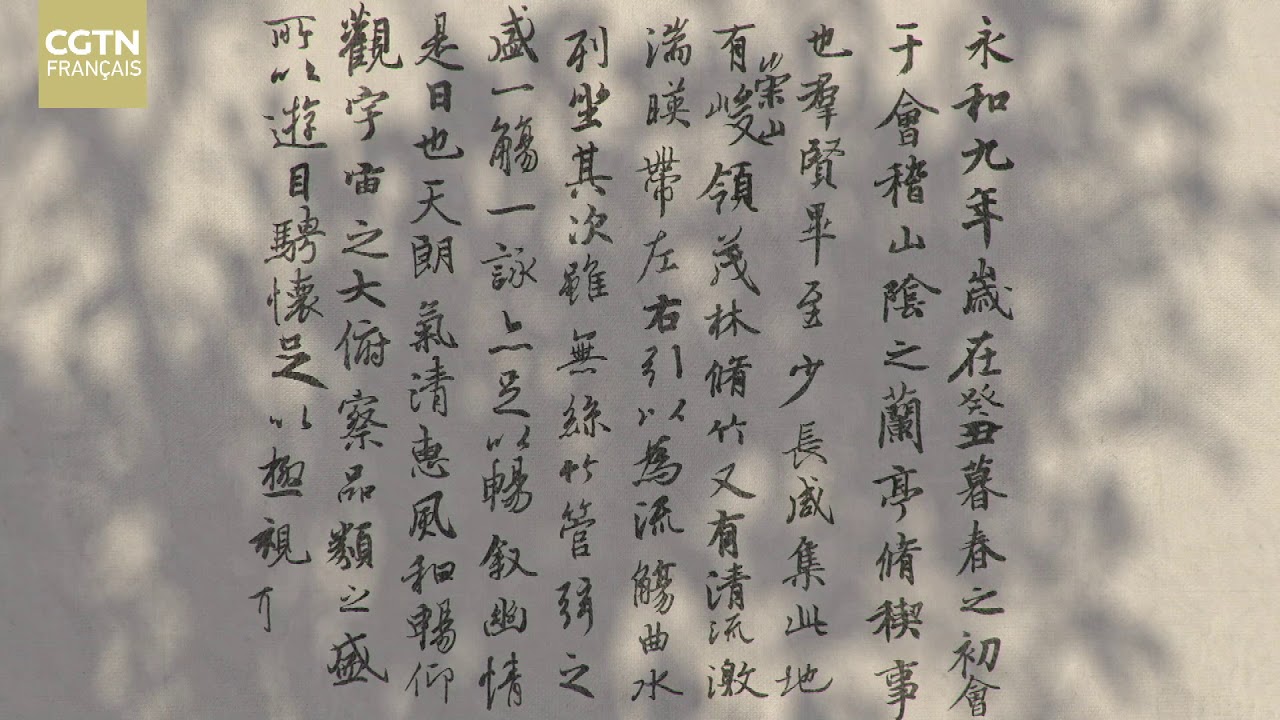 CGTN
FRANÇAIS
永和九年歲在癸丑暮春之初會
于會稽山陰之蘭亭脩稧事
也羣賢畢至少長咸集此地
有崇山峻領茂林脩竹又有清流激
湍暎帶左右引以為流觴曲水
列坐其次雖無絲竹管弦之
盛一觴一詠亦足以暢叙幽情
是日也天朗氣清惠風和暢仰
觀宇宙之大俯察品類之盛
所以遊目騁懷足以極視